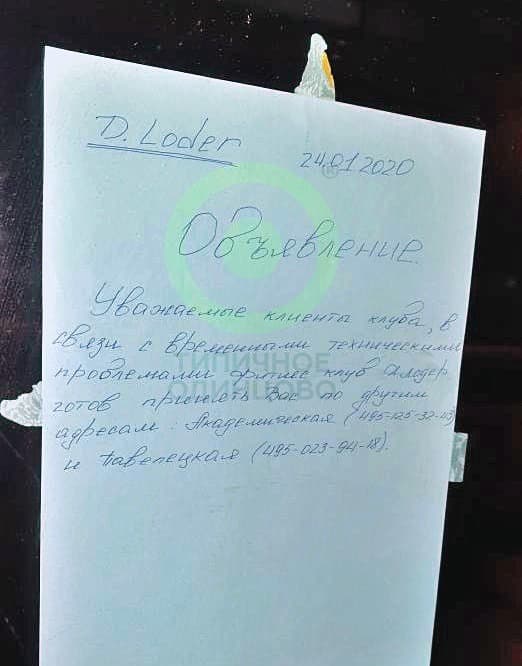 D. Loder
24.01 2020
Объявление.
Уважаемые клиенты клуба, в
связи с временными техническими
проблемами фитнес клуб Длодер
готов принять Вас по другим
адресам: Академическая (495-125-32-43)
и Павелецкая (495-023-94-18).
ТИПИЧНОЕ
ОДИНЦОВО